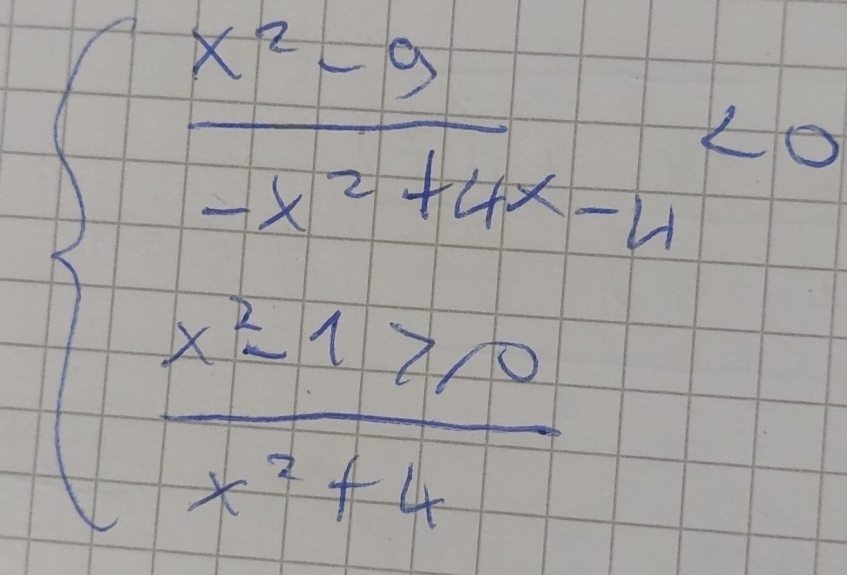 x² - 9
< 0
-x² + 4x - 4
x² - 1 ≥ 0
x² + 4